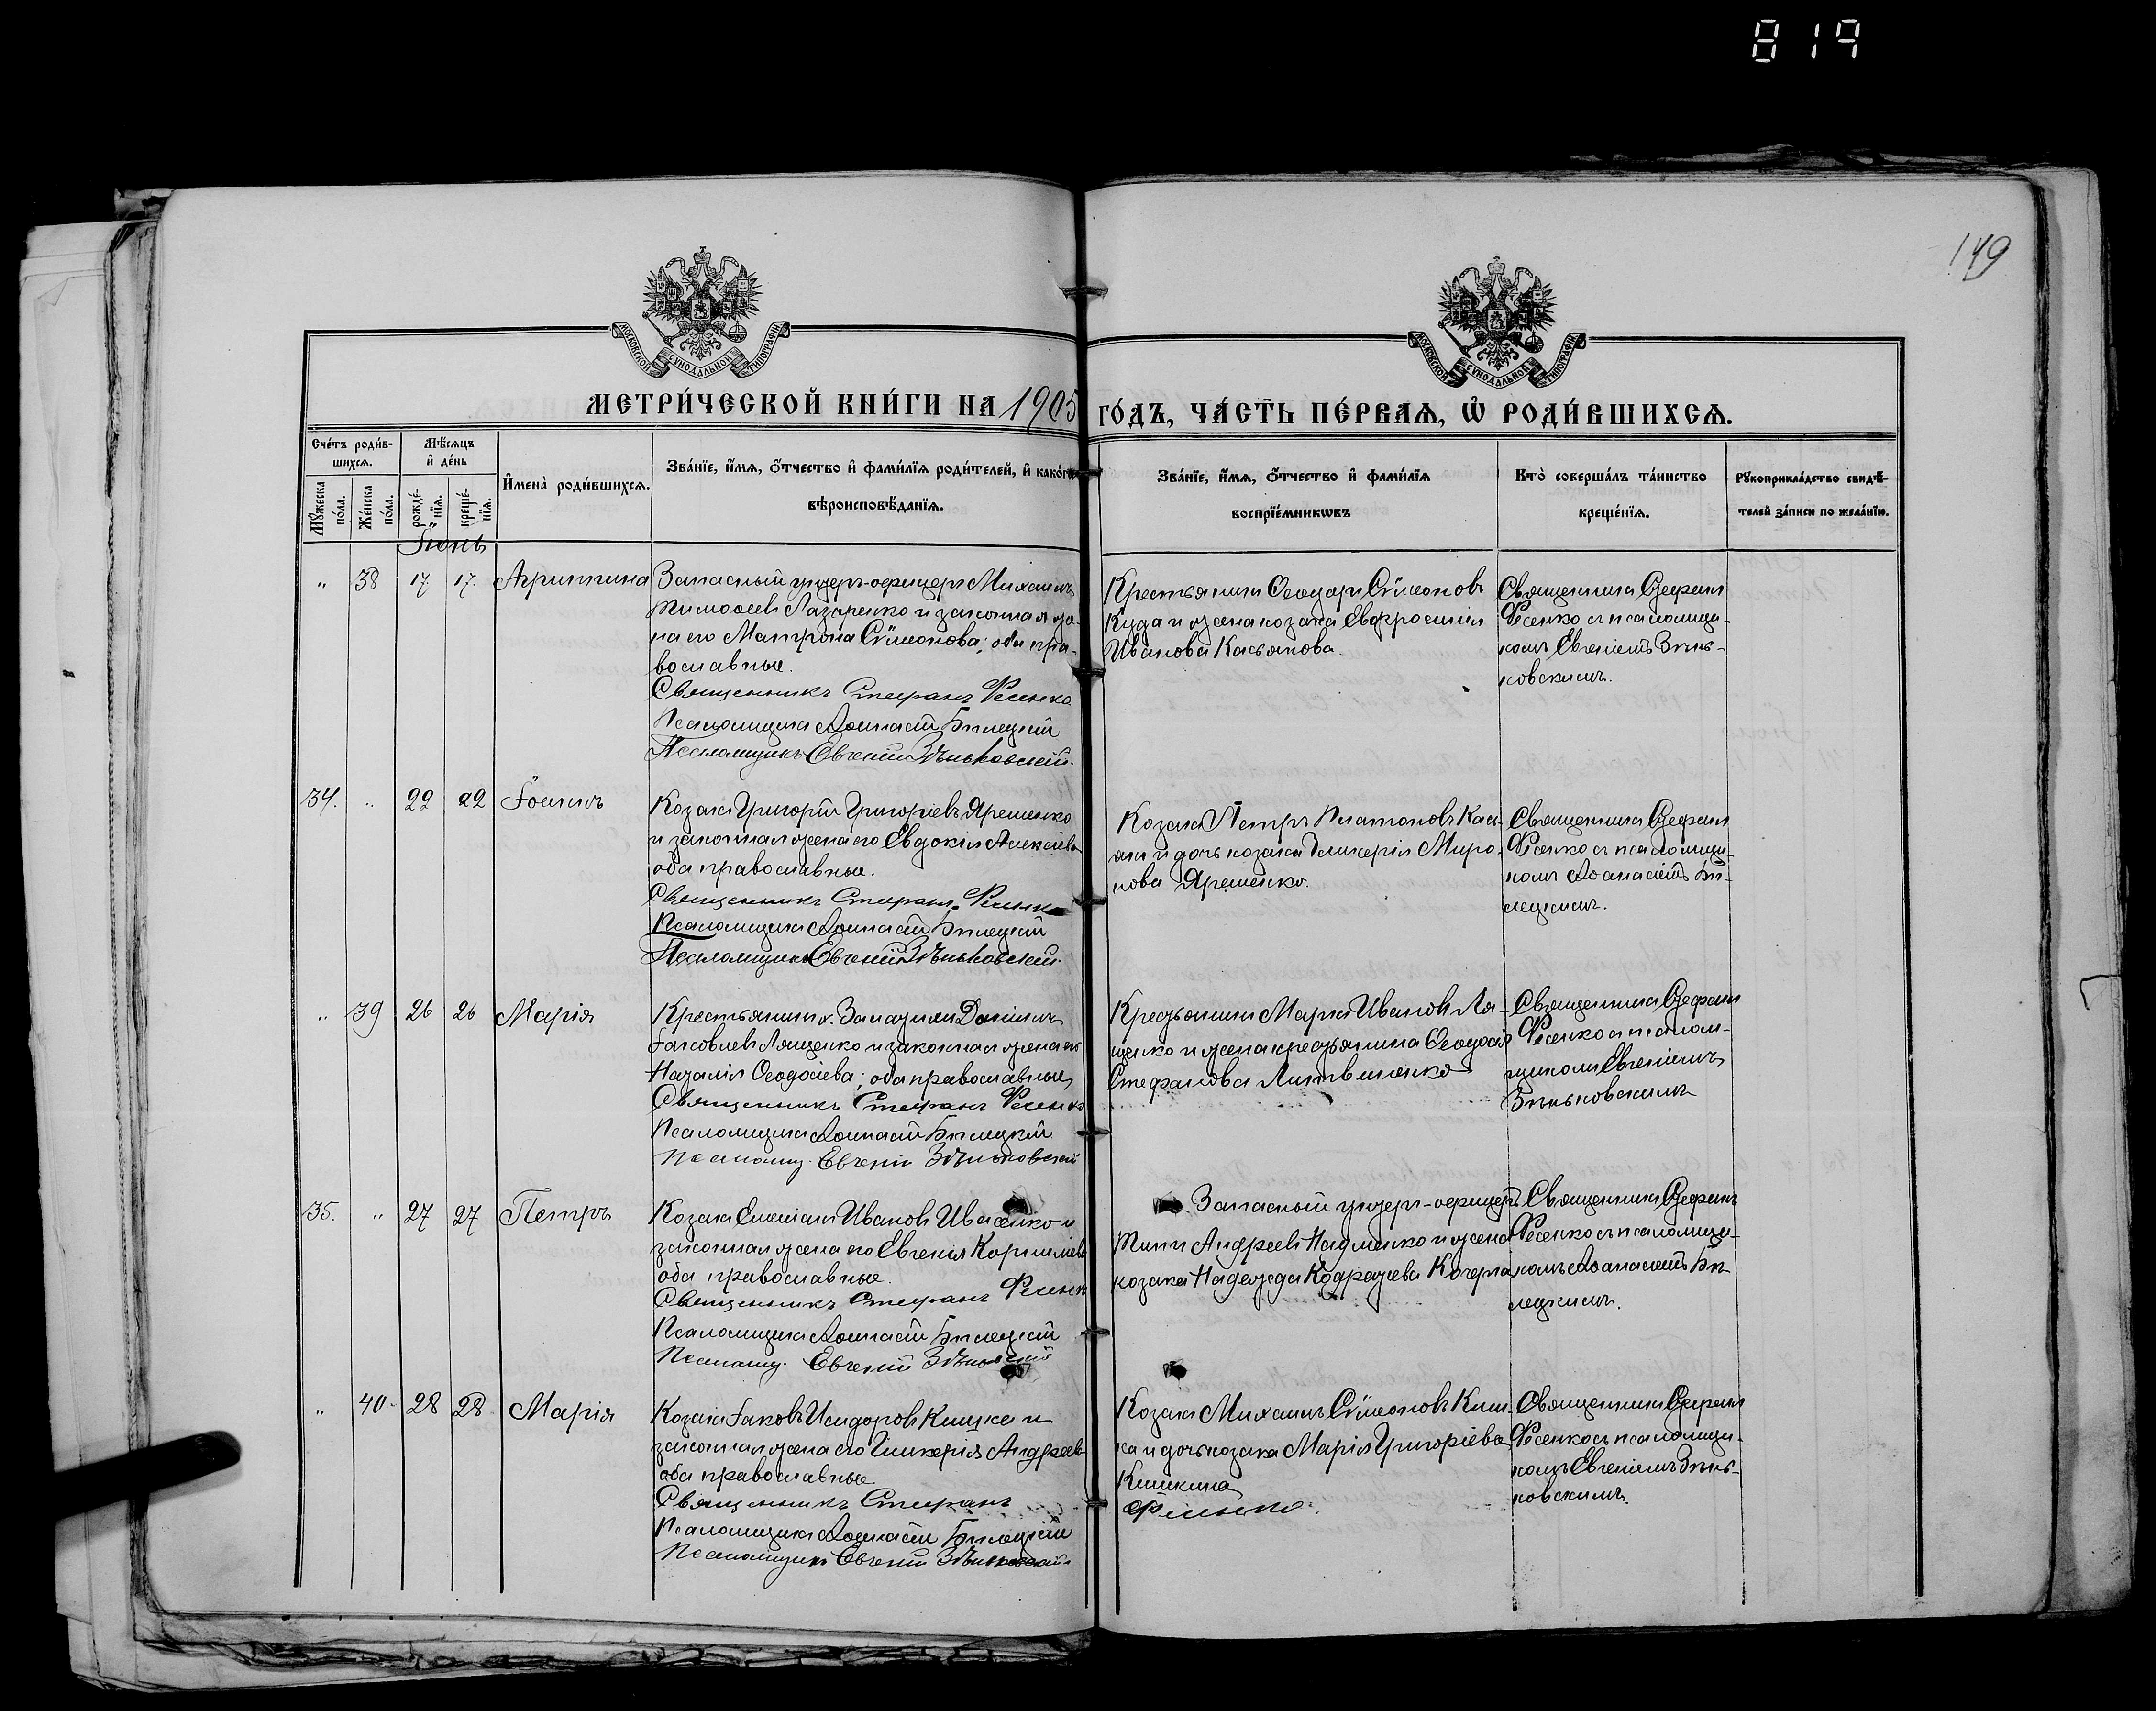 819
149
МОСКОВСКОЙ СѴНОДАЛЬНОЙ ТИПОГРАФІИ
МОСКОВСКОЙ СѴНОДАЛЬНОЙ ТИПОГРАФІИ
МЕТРИ́ЧЕСКОЙ КНИ́ГИ НА 1905 ГО́ДЪ, ЧА́СТЬ ПЕ́РВАѦ, Ѡ҆ РОДИ́ВШИХСѦ.
Сче́тъ роди́в-
шихсѧ.
Мꙋ́жеска по́ла.
Же́нска по́ла.
Мѣ́сѧцъ
и҆ де́нь
рожде́-
нїѧ.
креще́-
нїѧ.
И҆мена̀ роди́вшихсѧ.
Зва́нїе, и҆́мѧ, ѻ҆́тчество и҆ фами́лїѧ роди́телей, и҆ како́гѡ
вѣроисповѣ́данїѧ.
Зва́нїе, и҆́мѧ, ѻ҆́тчество и҆ фами́лїѧ
воспрїе́мникѡвъ
Кто̀ соверша́лъ та́инство
креще́нїѧ.
Рꙋкоприкла́дство свидѣ́-
телей за́писи по жела́нїю.
Іюнь
" 38 17 17. Агриппина
Запасный унтеръ-офицеръ Михаилъ
Тимоѳеевъ Лазаренко и законная же-
на его Матрона Сѵмеонова; оба пра-
вославные.
Священникъ Стефанъ Фесенко
Псаломщикъ Аѳанасій Бѣлецкій
Псаломщикъ Евгеній Зѣньковскій.
Крестьянинъ Ѳеодоръ Сѵмеоновъ
Куда и жена козака Евфросинія
Иванова Касьянова.
Священникъ Стефанъ
Фесенко съ псаломщи-
комъ Евгеніемъ Зѣнь-
ковскимъ.
34. " 22 22 Іоаннъ
Козакъ Григорій Григорьевъ Яременко
и законная жена его Евдокія Алексіева
оба православные.
Священникъ Стефанъ Фесенко
Псаломщикъ Аѳанасій Бѣлецкій
Псаломщикъ Евгеній Зѣньковскій.
Козакъ Петръ Платоновъ Кась-
янъ и дочь козака Гликерія Миро-
нова Яременко.
Священникъ Стефанъ
Фесенко съ псаломщи-
комъ Аѳанасіемъ Бѣ-
лецкимъ.
" 39 26 26 Марія
Крестьянинъ Даніилъ
Іаковлевъ Лященко и законная жена его
Наталія Ѳеодосіева; оба православные
Священникъ Стефанъ Фесенко
Псаломщикъ Аѳанасій Бѣлецкій
Псаломщ. Евгеній Зѣньковскій
Крестьянинъ Маркъ Ивановъ Ля-
щенко и жена крестьянина Ѳеодосія
Стефанова Литвиненко
Священникъ Стефанъ
Фесенко съ псалом-
щикомъ Евгеніемъ
Зѣньковскимъ
35. " 27 27 Петръ
Козакъ Емеліанъ Ивановъ Иваненко и
законная жена его Евгенія Корниліева
оба православные.
Священникъ Стефанъ Фесенко
Псаломщикъ Аѳанасій Бѣлецкій
Псаломщ. Евгеній Зѣньковскій
Запасный унтеръ-офицеръ
Андреевъ и жена
козака Надежда Кочерга
Священникъ Стефанъ
Фесенко съ псаломщи-
комъ Аѳанасіемъ Бѣ-
лецкимъ.
" 40 28 28 Марія
Козакъ Іаковъ Исидоровъ Кишка и
законная жена его Гликерія Андреева
оба православные
Священникъ Стефанъ
Псаломщикъ Аѳанасій Бѣлецкій
Псаломщикъ Евгеній Зѣньковскій
Козакъ Михаилъ Сѵмеоновъ Киш-
ка и дочь козака Марія Григоріева
Кишкина
Фесенко.
Священникъ Стефанъ
Фесенко съ псаломщи-
комъ Евгеніемъ Зѣнь-
ковскимъ.